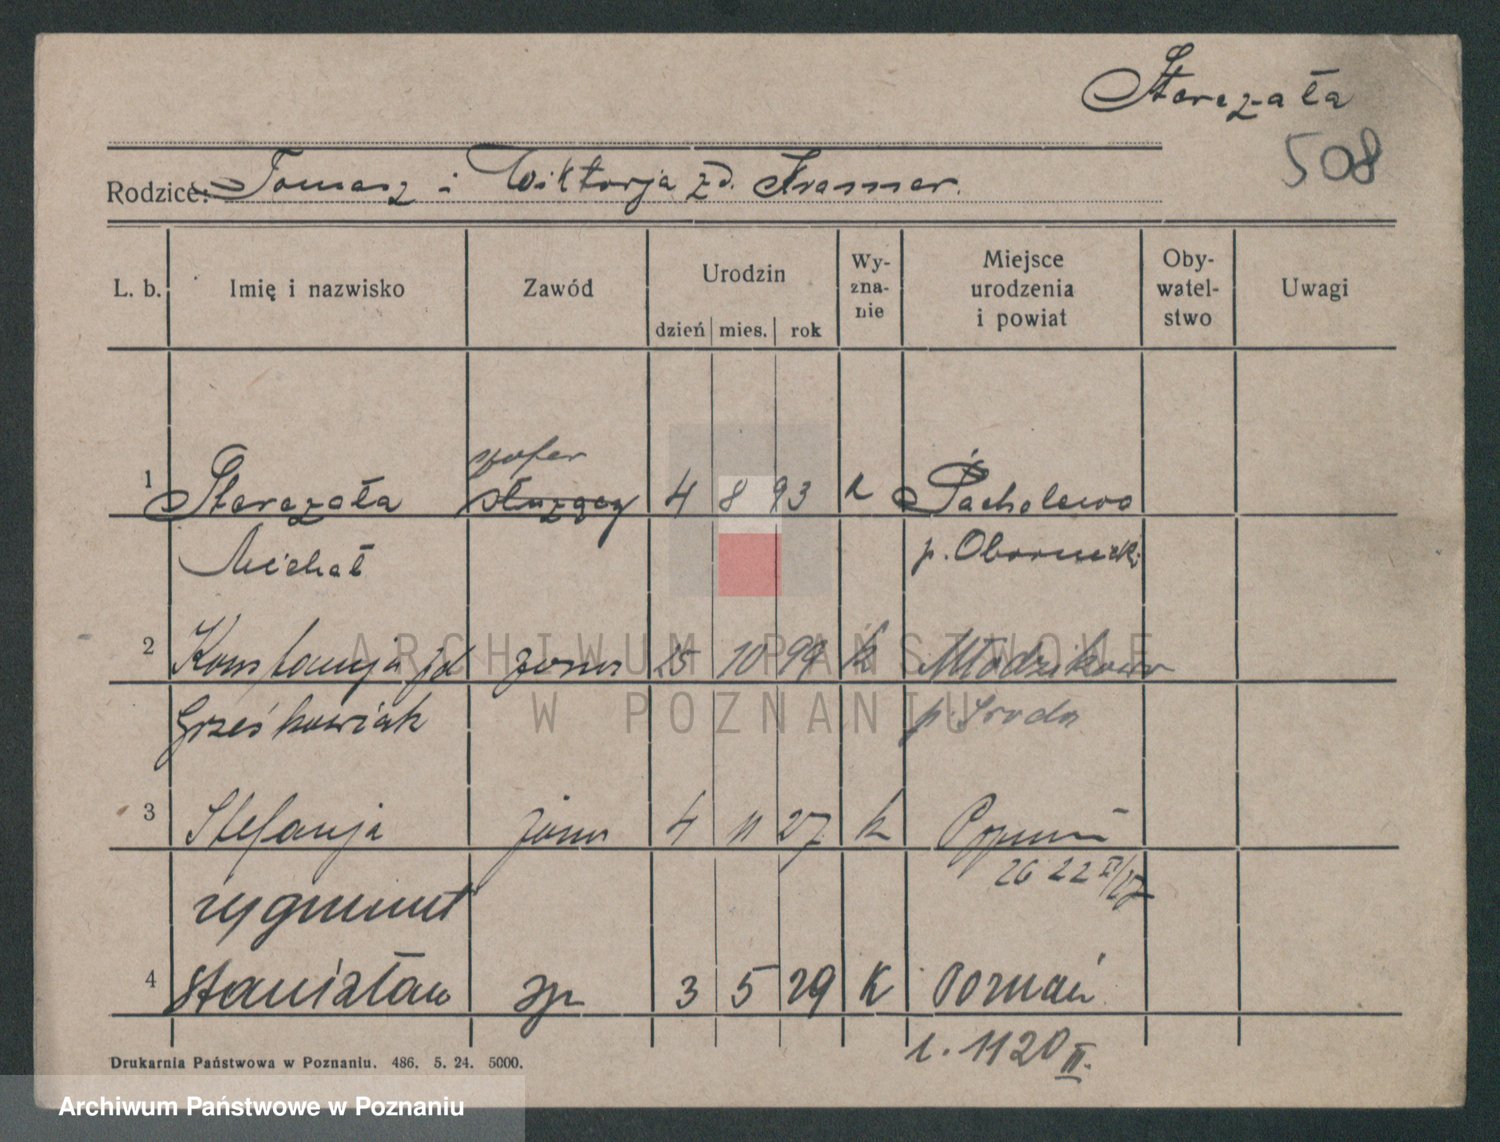 Starczała
508
Rodzice: Tomasz i Wiktorja zd. Kramer.
L. b. Imię i nazwisko Zawód Urodzin dzień mies. rok Wy-zna-nie Miejsce urodzenia i powiat Oby-watel-stwo Uwagi
szofer
1 Starczała służący 4 8 93 k Pacholewo
Michał p. Obornicki
2 Konstancja zd żona 25 10 99 k Młodzikowo
Grześkowiak p. Środa
3 Stefanja 4 11 27 k
26 22
zygmunt
4 Stanisław syn 3 5 29 K Poznań
1120 II.
Drukarnia Państwowa w Poznaniu. 486. 5. 24. 5000.
ARCHIWUM PAŃSTWOWE
W POZNANIU
Archiwum Państwowe w Poznaniu